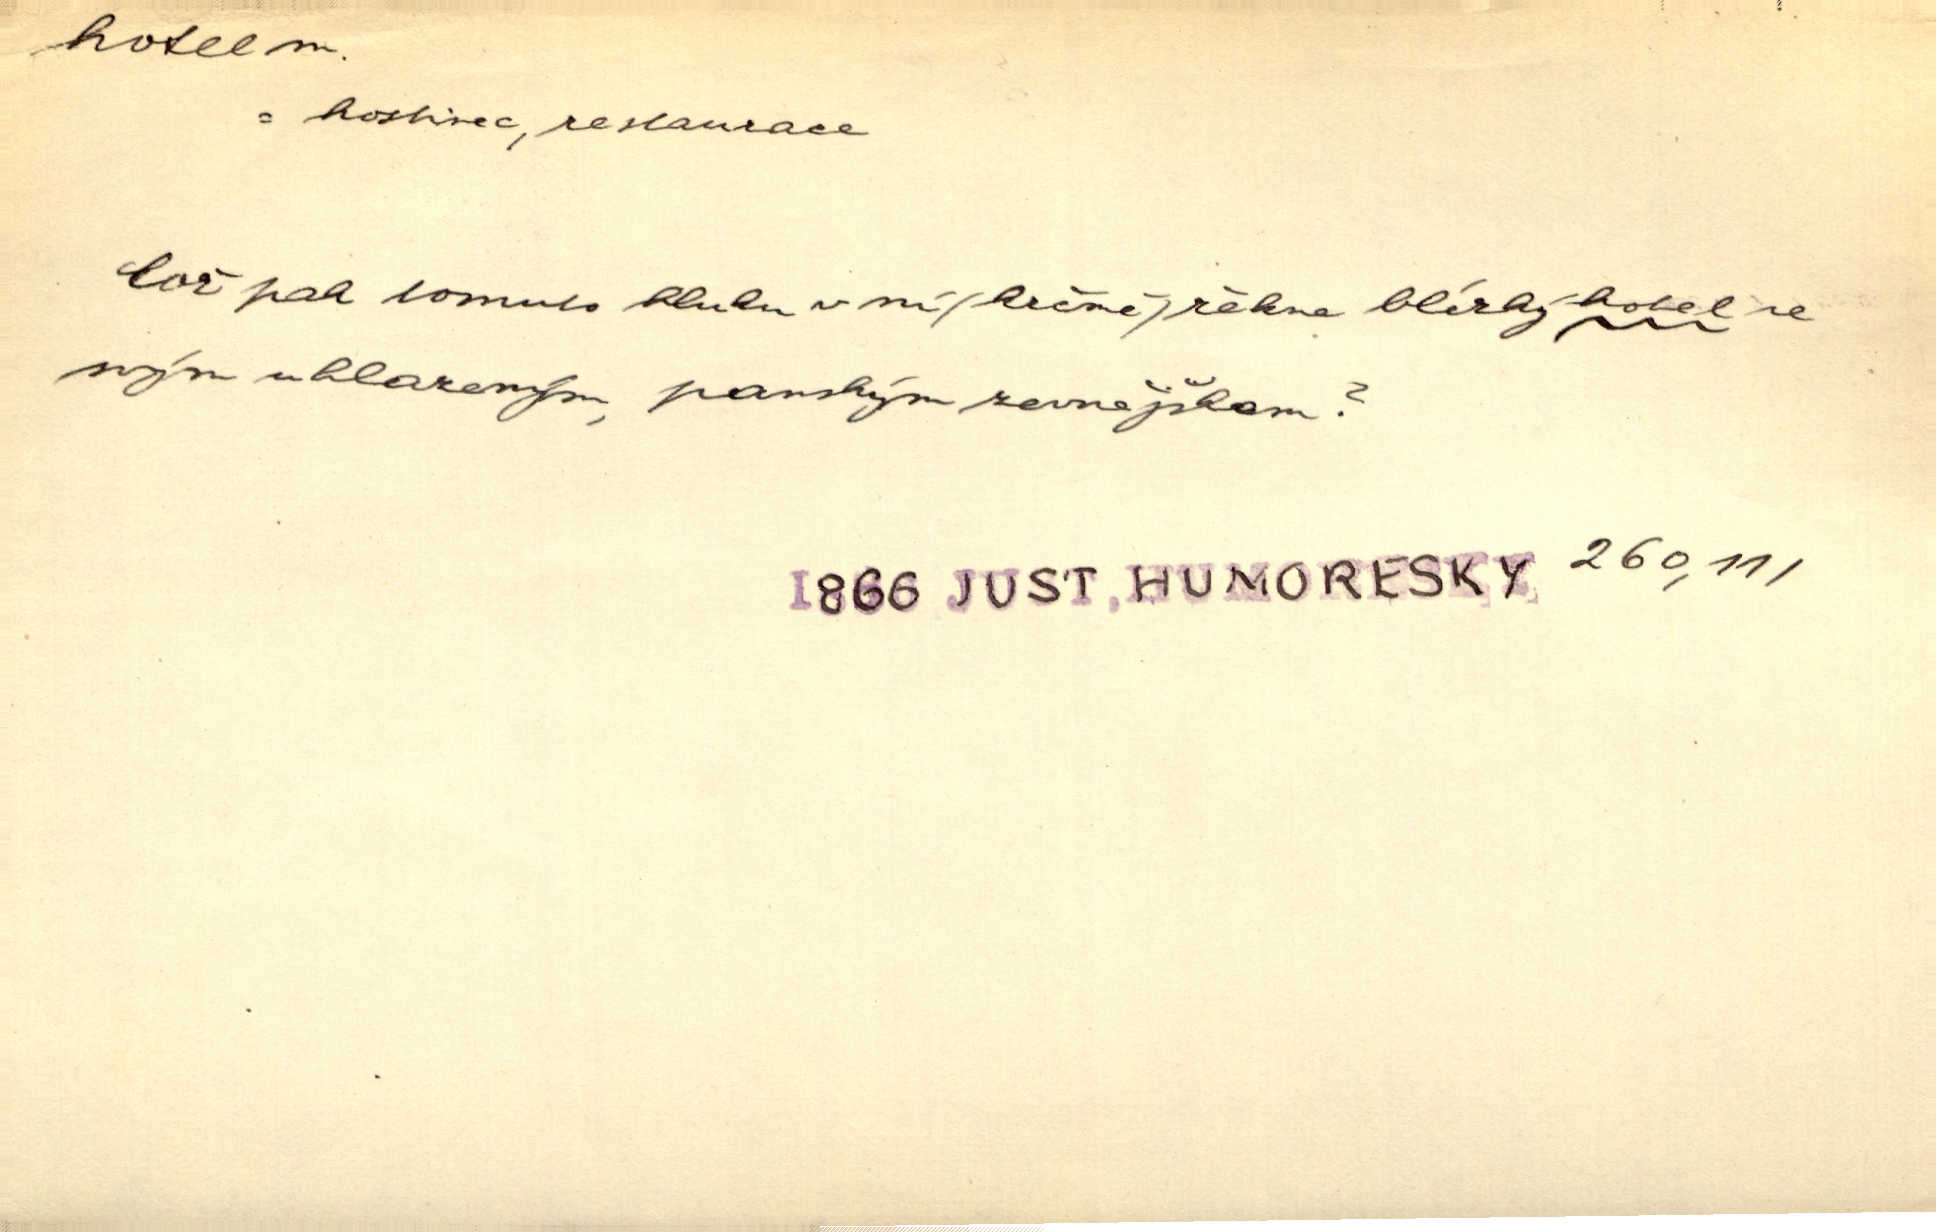 hotel m.
= hostinec, restaurace
Což pak tomuto hluku v ní (krčmě) řekne blízký hotel se
svým uhlazeným, panským zevnějškem?
1866 JUST, HUMORESKY 260, 111